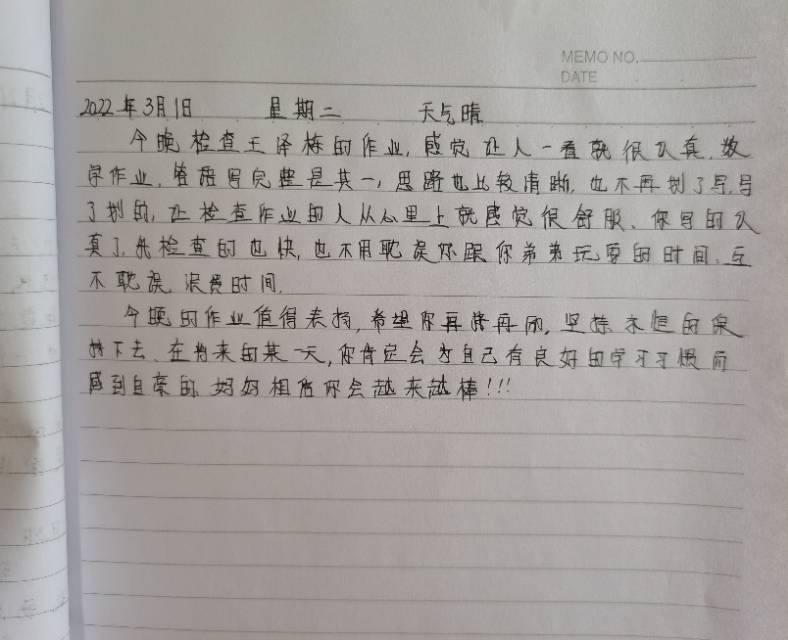 MEMO NO.
DATE
2022年3月1日 星期二 天气晴
今晚检查王泽栋的作业,感觉让人一看就很认真,数
学作业,答题写完整是其一,思路也比较清晰,也不再划了写,写
了划的,让检查作业的人从心里上就感觉很舒服、你写的认
真了,我检查的也快,也不用耽误你跟你弟弟玩耍的时间,互
不耽误浪费时间,
今晚的作业值得表扬,希望你再接再励,坚持永恒的保
持下去、在将来的某一天,你肯定会为自己有良好的学习习惯而
感到自荣的,妈妈相信你会越来越棒!!!